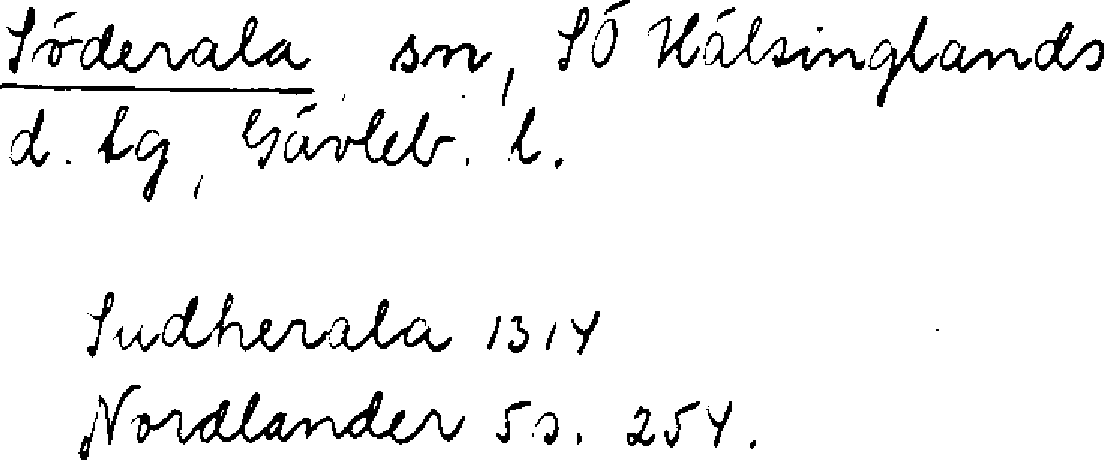 Söderala sn, SÖ Hälsinglands
d. tg, Gävleb. l.
Sudherala 1314
Nordlander 5 s. 254.